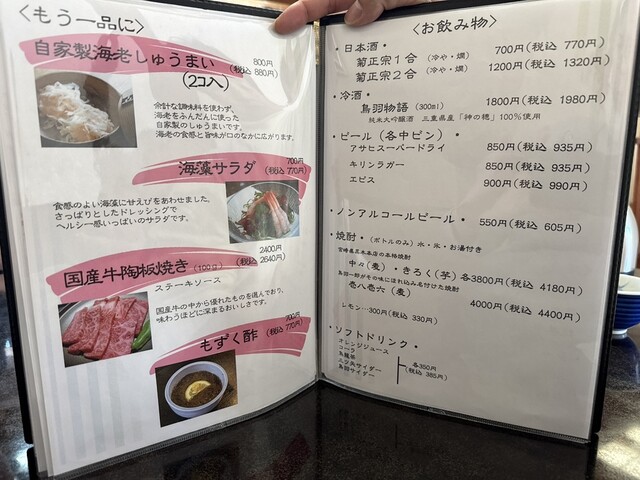 〈もう一品に〉
自家製海老しゅうまい
(2コ入)
800円
(税込 880円)
余計な調味料を使わず、
海老をふんだんに使った
自家製のしゅうまいです。
海老の食感と旨味が口のなかに広がります。
海藻サラダ
700円
(税込 770円)
食感のよい海藻に甘えびをあわせました。
さっぱりとしたドレッシングで
ヘルシー感いっぱいのサラダです。
国産牛陶板焼き (100g)
2400円
(税込 2640円)
ステーキソース
国産牛の中から優れたものを選んであり、
味わうほどに深まるおいしさです。
もずく酢
700円
(税込 770円)
〈お飲み物〉
・日本酒・
菊正宗1合 (冷や・燗) 700円(税込 770円)
菊正宗2合 (冷や・燗) 1200円(税込 1320円)
・冷酒・
鳥羽物語 (300㎖) 1800円(税込 1980円)
純米大吟醸酒 三重県産「神の穂」100%使用
・ビール(各中ビン)・
アサヒスーパードライ 850円(税込 935円)
キリンラガー 850円(税込 935円)
エビス 900円(税込 990円)
・ノンアルコールビール・ 550円(税込 605円)
・焼酎・ (ボトルのみ) 水・氷・お湯付き
宮崎県黒木本店の本格焼酎
中々(麦)・きろく(芋) 各3800円(税込 4180円)
壱八壱六(麦) 4000円(税込 4400円)
レモン…300円(税込 330円)
・ソフトドリンク・
オレンジジュース
コーラ
烏龍茶
三ツ矢サイダー
鳥羽サイダー
各350円
(税込 385円)